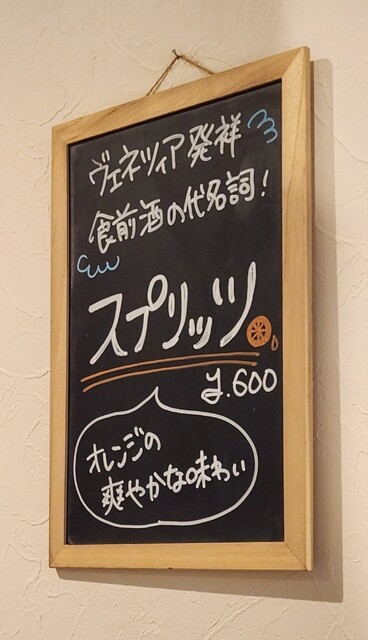 ヴェネツィア発祥
食前酒の代名詞!
スプリッツ
¥.600
オレンジの
爽やかな味わい